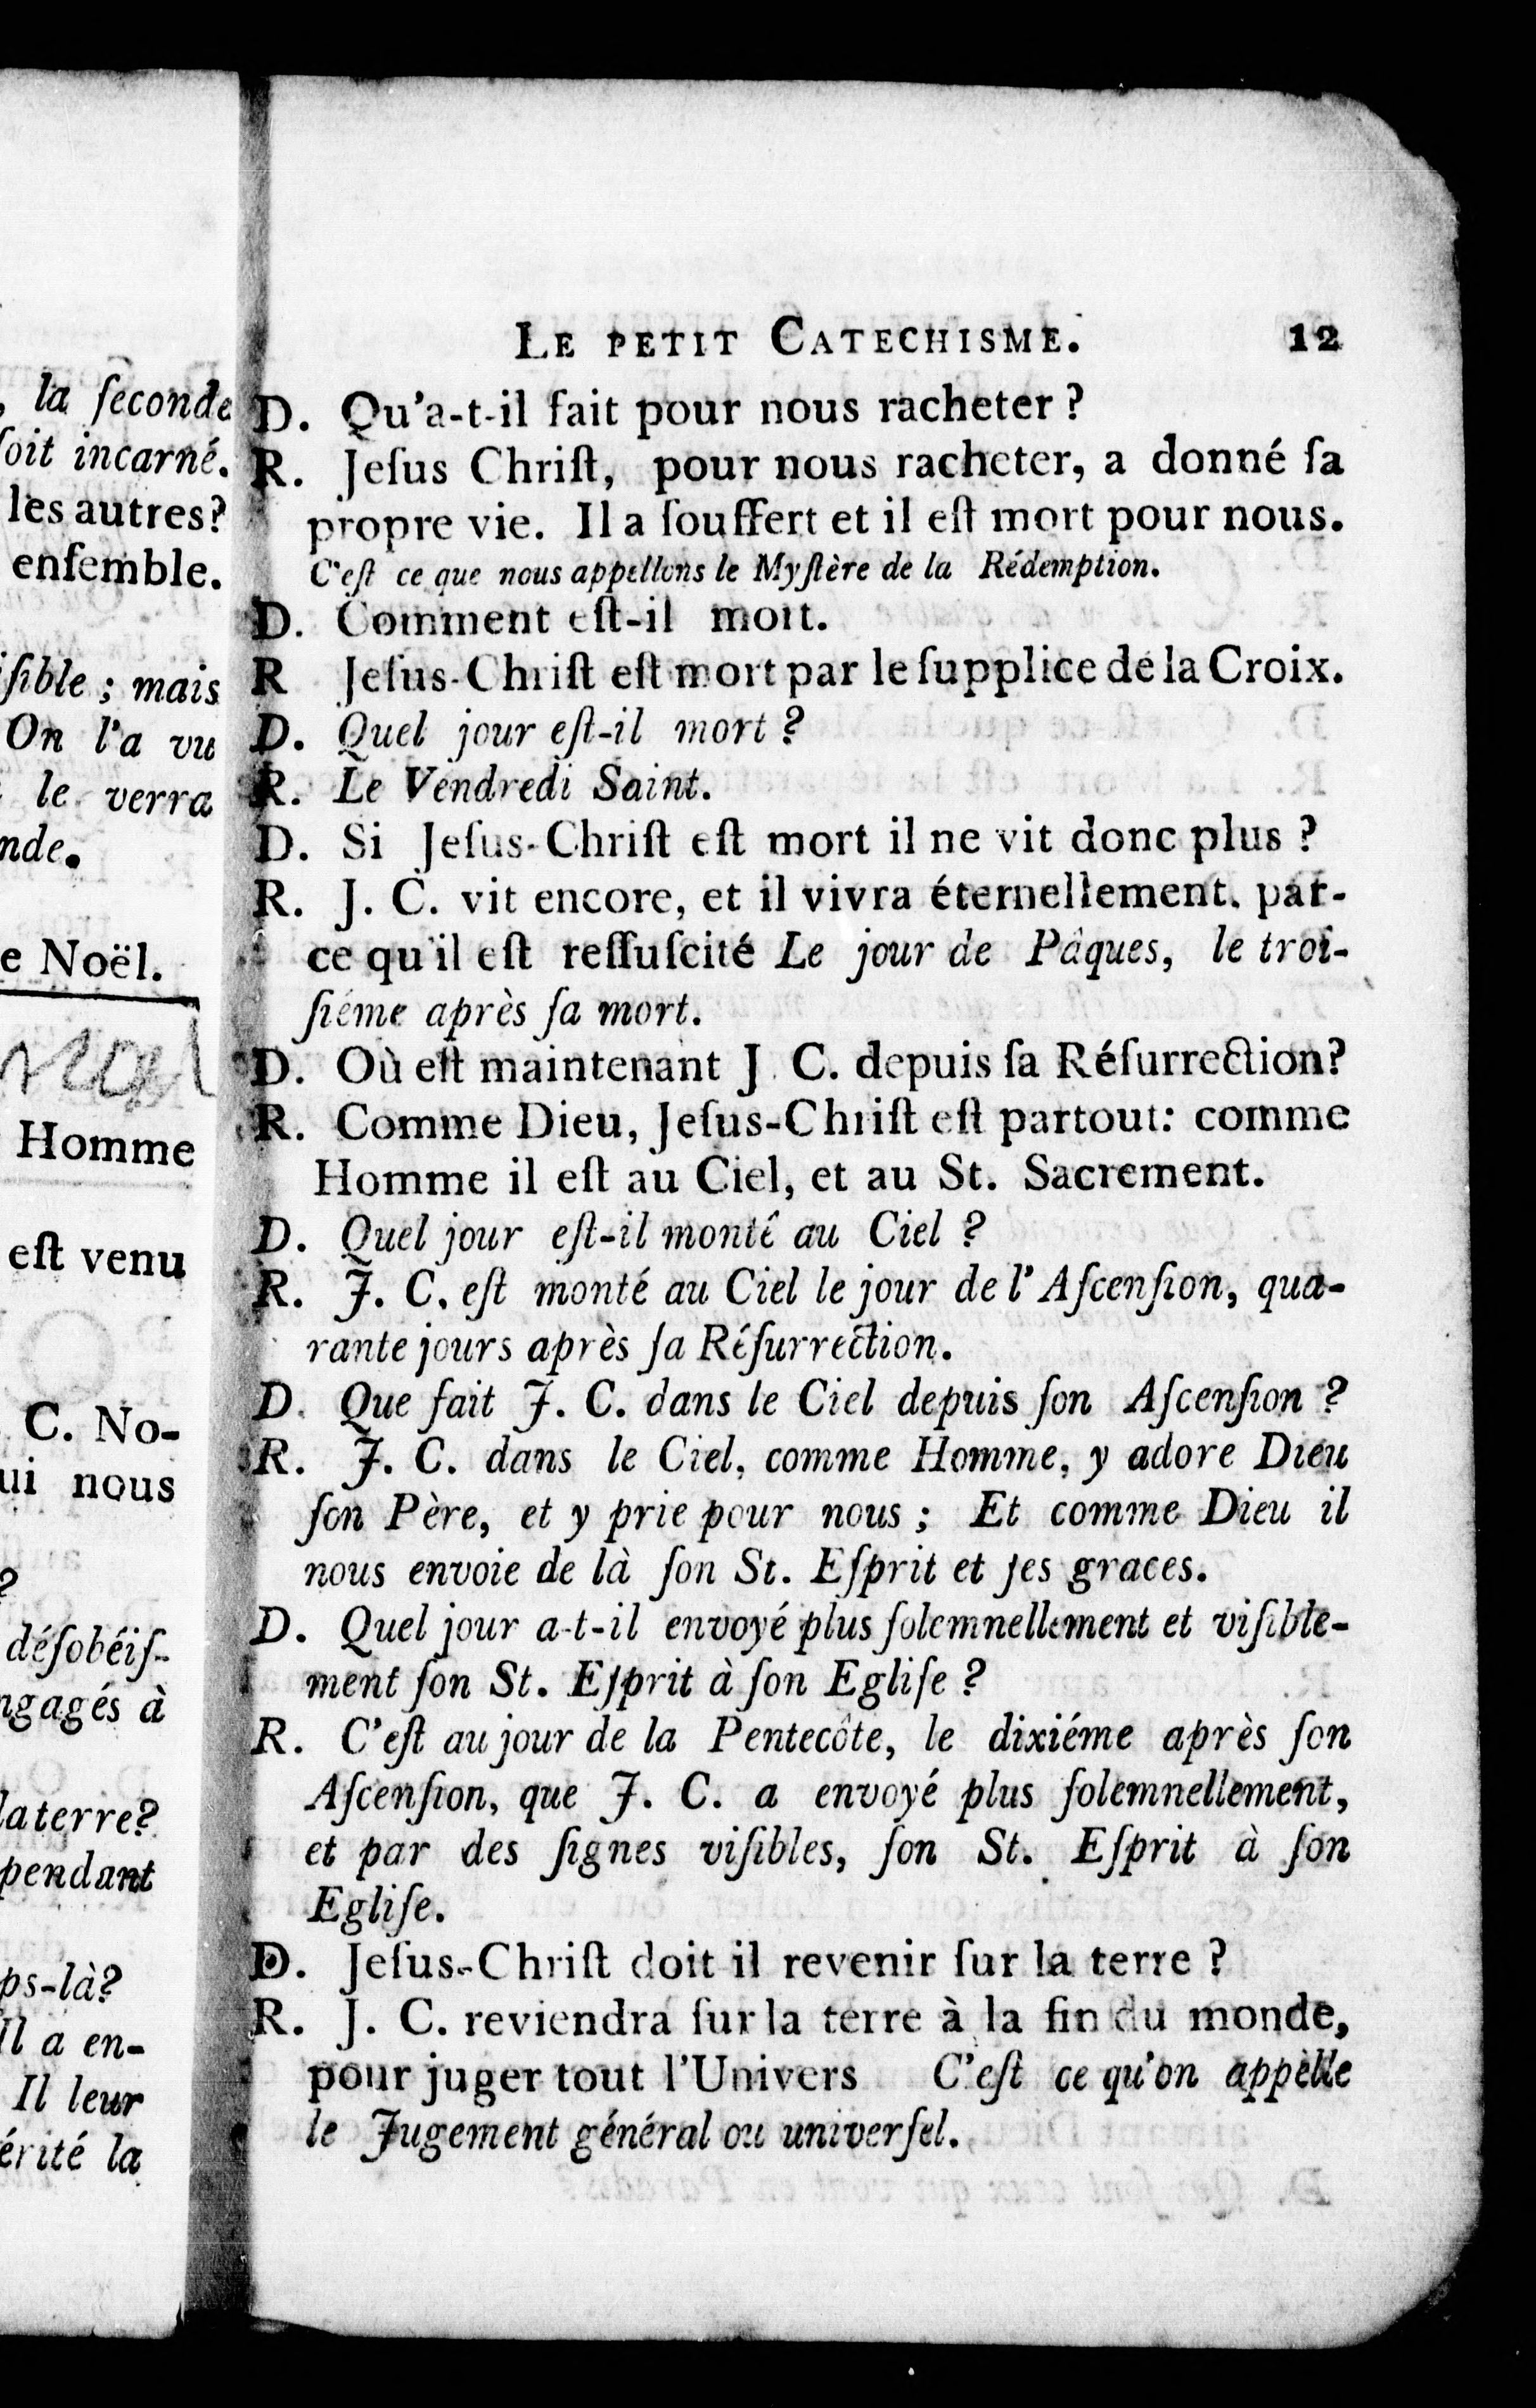 , la ſeconde
ſoit incarné.
les autres?
enſemble.
ſible ; mais
On l'a vu
le verra
nde.
e Noël.
Homme
eſt venu
C. No-
ui nous
?
déſobéiſ-
ngagés à
la terre?
pendant
ps-là?
Il a en-
Il leur
érité la
LE PETIT CATECHISME. 12
D. Qu'a-t-il fait pour nous racheter ?
R. Jeſus Chriſt, pour nous racheter, a donné ſa
propre vie. Il a ſouffert et il eſt mort pour nous.
C'eſt ce que nous appellons le Myſtère de la Rédemption.
D. Comment eſt-il mort.
R Jeſus-Chriſt eſt mort par le ſupplice de la Croix.
D. Quel jour eſt-il mort ?
R. Le Vendredi Saint.
D. Si Jeſus-Chriſt eſt mort il ne vit donc plus ?
R. J. C. vit encore, et il vivra éternellement, par-
ce qu'il eſt reſſuſcité Le jour de Pâques, le troi-
ſiéme après ſa mort.
D. Où eſt maintenant J C. depuis ſa Réſurrection?
R. Comme Dieu, Jeſus-Chriſt eſt partout: comme
Homme il eſt au Ciel, et au St. Sacrement.
D. Quel jour eſt-il monté au Ciel ?
R. J. C. eſt monté au Ciel le jour de l'Aſcenſion, qua-
rante jours après ſa Réſurrection.
D. Que fait J. C. dans le Ciel depuis ſon Aſcenſion ?
R. J. C. dans le Ciel, comme Homme, y adore Dieu
ſon Père, et y prie pour nous ; Et comme Dieu il
nous envoie de là ſon St. Eſprit et ſes graces.
D. Quel jour a-t-il envoyé plus ſolemnellement et viſible-
ment ſon St. Eſprit à ſon Egliſe ?
R. C'eſt au jour de la Pentecôte, le dixiéme après ſon
Aſcenſion, que J. C. a envoyé plus ſolemnellement,
et par des ſignes viſibles, ſon St. Eſprit à ſon
Egliſe.
D. Jeſus-Chriſt doit il revenir ſur la terre ?
R. J. C. reviendra ſur la terre à la fin du monde,
pour juger tout l'Univers C'eſt ce qu'on appelle
le Jugement général ou univerſel.